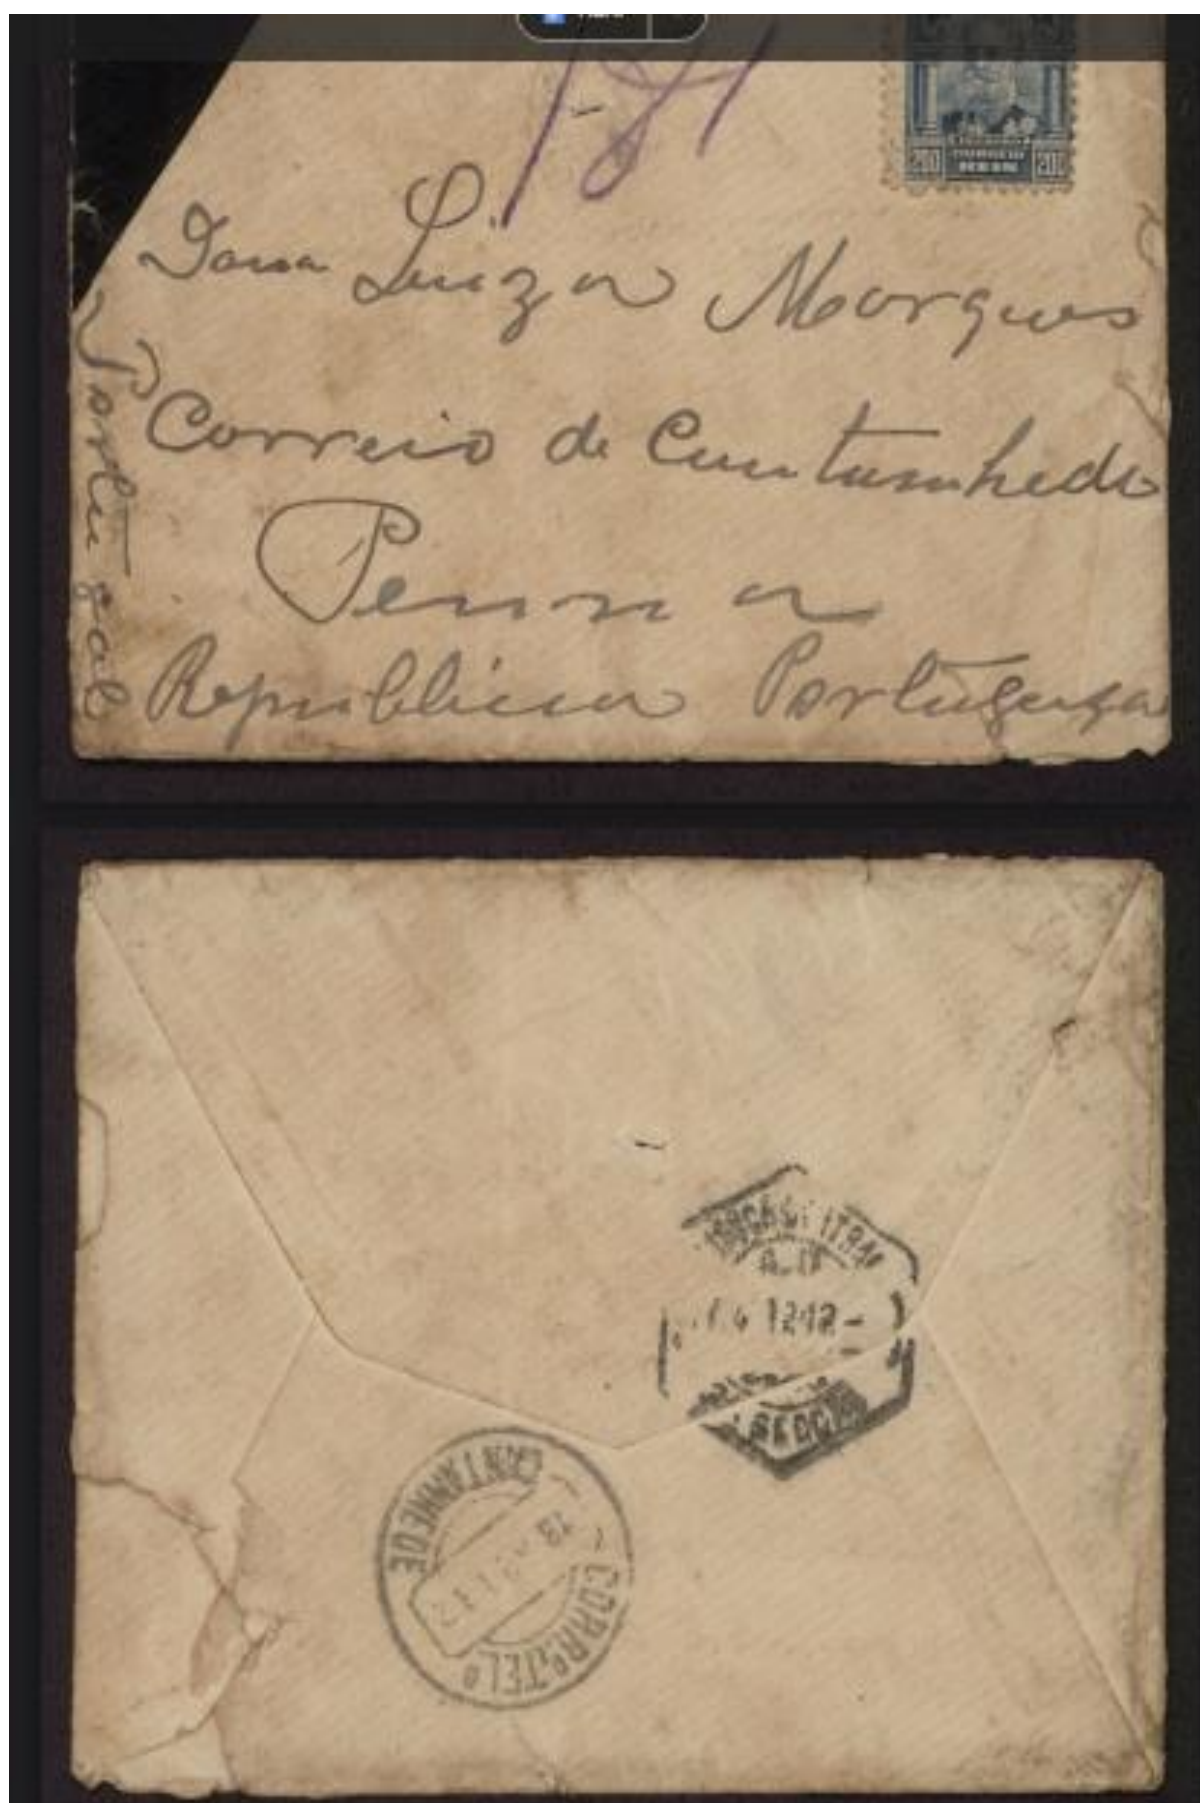 200 CORREIO 200
REIS
Dona Luiza Marques
Correio de Cantanhede
Penna
Republica Portugueza
Portugal
1912-
SECÇÃO
CANTANHEDE
CORR.º TEL.º